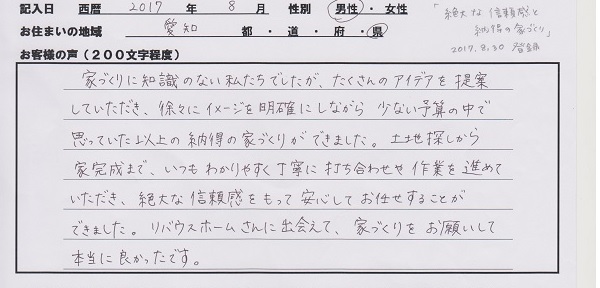 記入日 西暦 2017 年 8 月 性別 男性・女性
お住まいの地域 愛知 都・道・府・県
「絶大な信頼感と
納得の家づくり」
2017.8.30 登録
お客様の声(200文字程度)
家づくりに知識のない私たちでしたが、たくさんのアイデアを提案
していただき、徐々にイメージを明確にしながら 少ない予算の中で
思っていた以上の納得の家づくりができました。土地探しから
家完成まで、いつもわかりやすく丁寧に打ち合わせや作業を進めて
いただき、絶大な信頼感をもって安心してお任せすることが
できました。リバウスホームさんに出会えて、家づくりをお願いして
本当に良かったです。